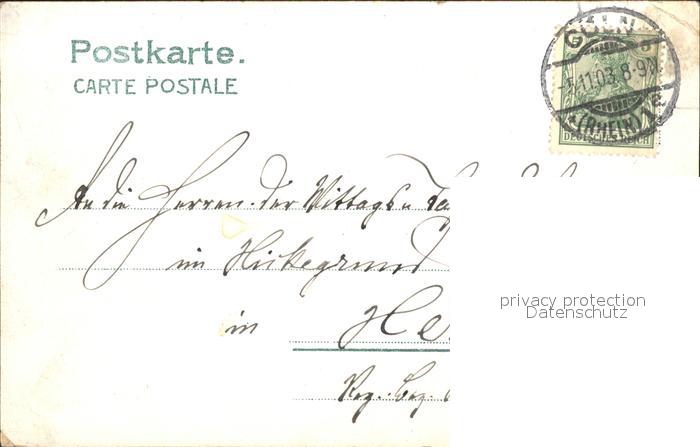 Postkarte.
CARTE POSTALE
CÖLN
5 5
11.03. 8-9N.
*(RHEIN) 1
DEUTSCHES REICH
An die Herren der Mittags u.
im Hickegrund
in He
Reg. Bez.
privacy protection
Datenschutz